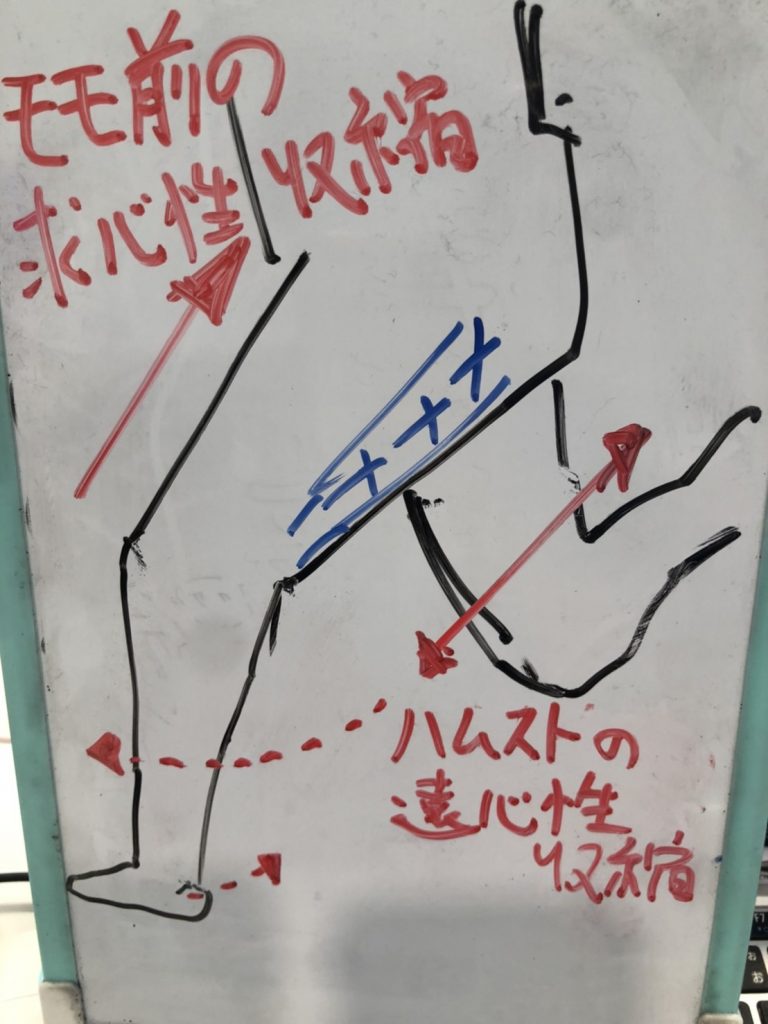 モモ前の
求心性収縮
ハムストの
遠心性
収縮